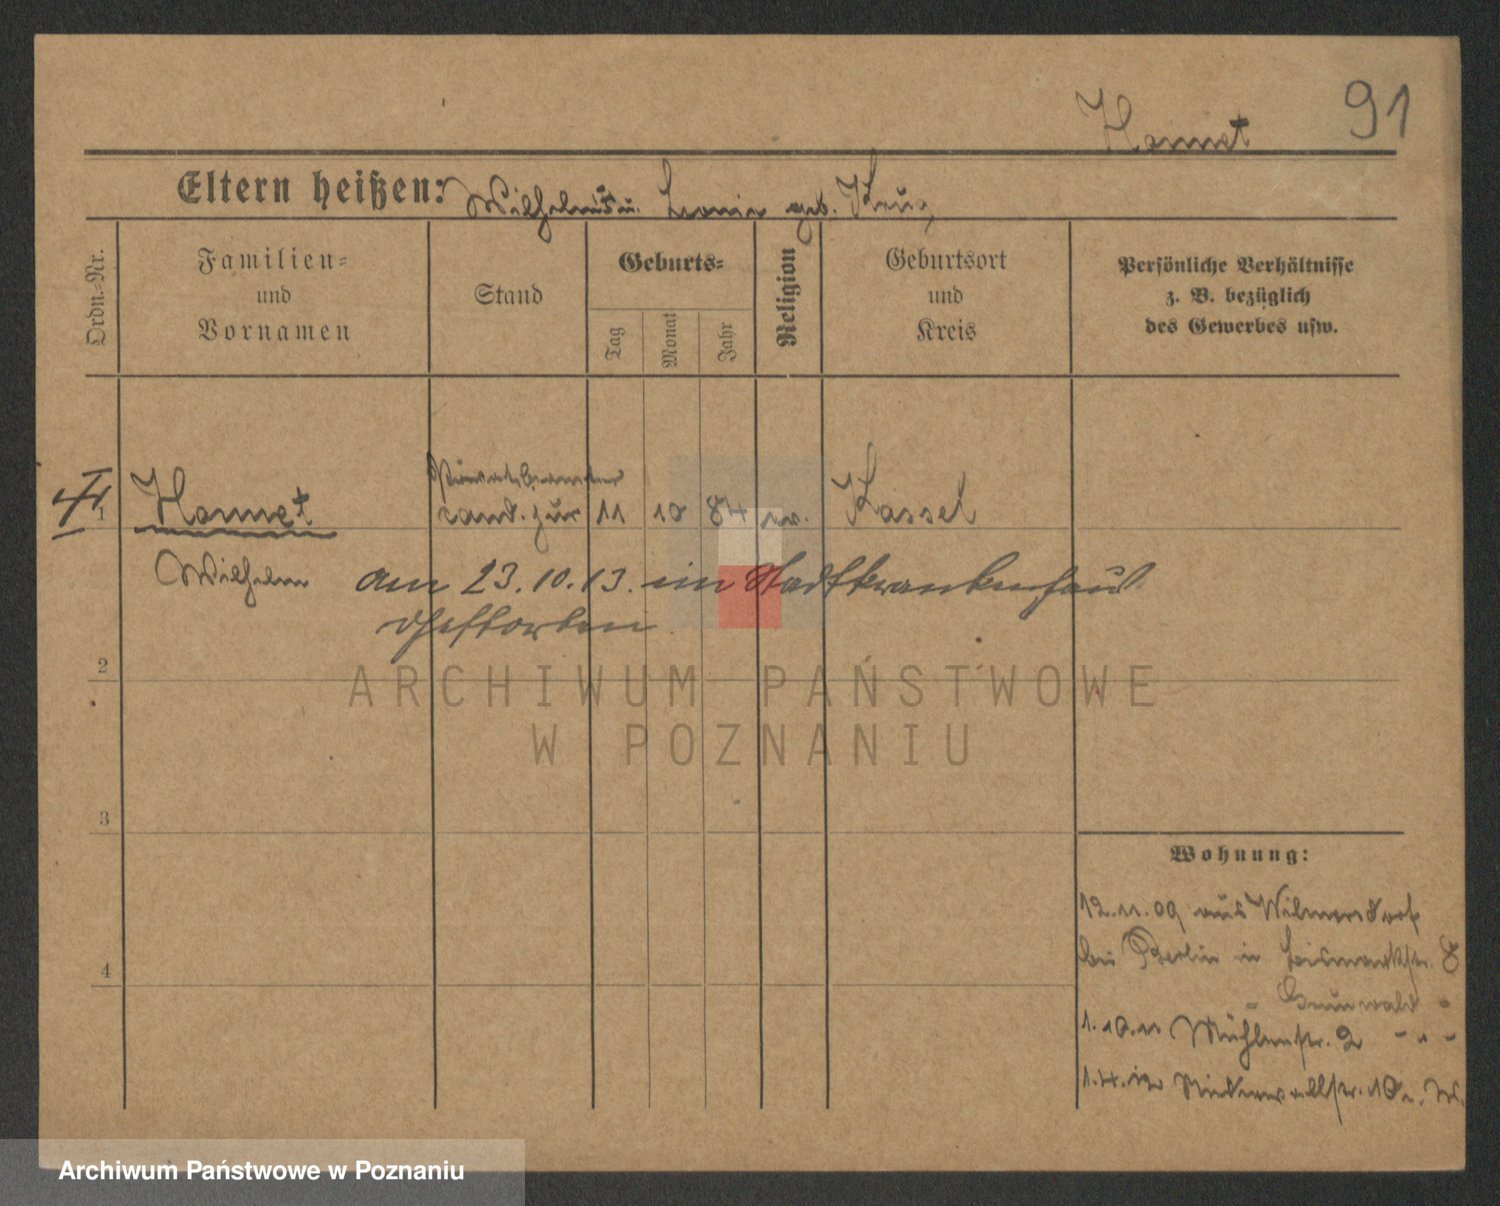 91
Hannet
Eltern heißen: Wilhelm u. Leonie geb. Krug
Ordn.-Nr.
Familien-
und
Vornamen
Stand
Geburts-
Tag
Monat
Jahr
Religion
Geburtsort
und
Kreis
Persönliche Verhältnisse
z. B. bezüglich
des Gewerbes usw.
Privatbeamter
1 Hannet cand. jur 11 10 84 ev. Kassel
Wilhelm am 23.10.13. im Stadtkrankenhaus
gestorben
2
ARCHIWUM PAŃSTWOWE
W POZNANIU
3
4
Wohnung:
12.11.09 aus Wilmersdorf
bei Berlin in Bismarckstr. 8
Grunwald
1.10.11 Mühlenstr. 2
1.4.12 Niederwallstr.
Archiwum Państwowe w Poznaniu